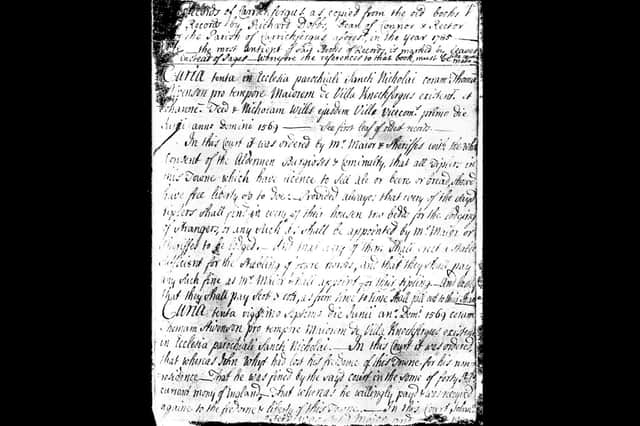 Records of Carrickfergus as copied from the old books
of Records by Richard Dobbs Dean of Connor & Rector
of the Parish of Carrickfergus aforesd, in the Year 1785
the most antient of said Books of Records is marked by Leaves
instead of Pages wherefore the references to that book, must be
Curia tenta in Ecclesia parochiali Sancti Nicholai coram Thoma
Stevenson pro tempore Maiorem de Villa Knockfergus existent. et
& Nichoram Wills eiusdem Villa Vicecom. primo die
Julii anno Domini 1569 See first leaf of oldest records
In this Court it was ordered by Mr. Maior & Sheriffes with the whole
Consent of the Aldermen Burgioses & Cominalty, that all Tiplers in
this Towne which have licence to sell ale or beere or bread, should
have free liberty so to doe: Provided always that every of the sayd
tiplers shall in every of their housen two bedds for the lodging
of Strangers, or any such as shall be appointed by Mr. Maior or
Sheriffes to be lodged. And that every of them shall erect a stable
sufficient for the Stabling of horses, and that they shall pay
such fine as Mr. Maior shall appoint for their tipling. And
that they shall pay Scot & Lott, as from time to time shall
Curia tenta vigesimo Septimo die Junii an. Dom. 1569 coram
Thomam Stevenson pro tempore Maiorem de Villa Knockfergus existen
in Ecclesia parochiali Sancti Nicholai. In this Court it was ordered
that whereas John Whyt had lost his fredome of this Towne for his non
residence That he was fined by the sayd court in the some of forty
currant mony of England, That whereas he willingly payd & was receyved
againe to the fredome & liberty of this Towne. In this Court